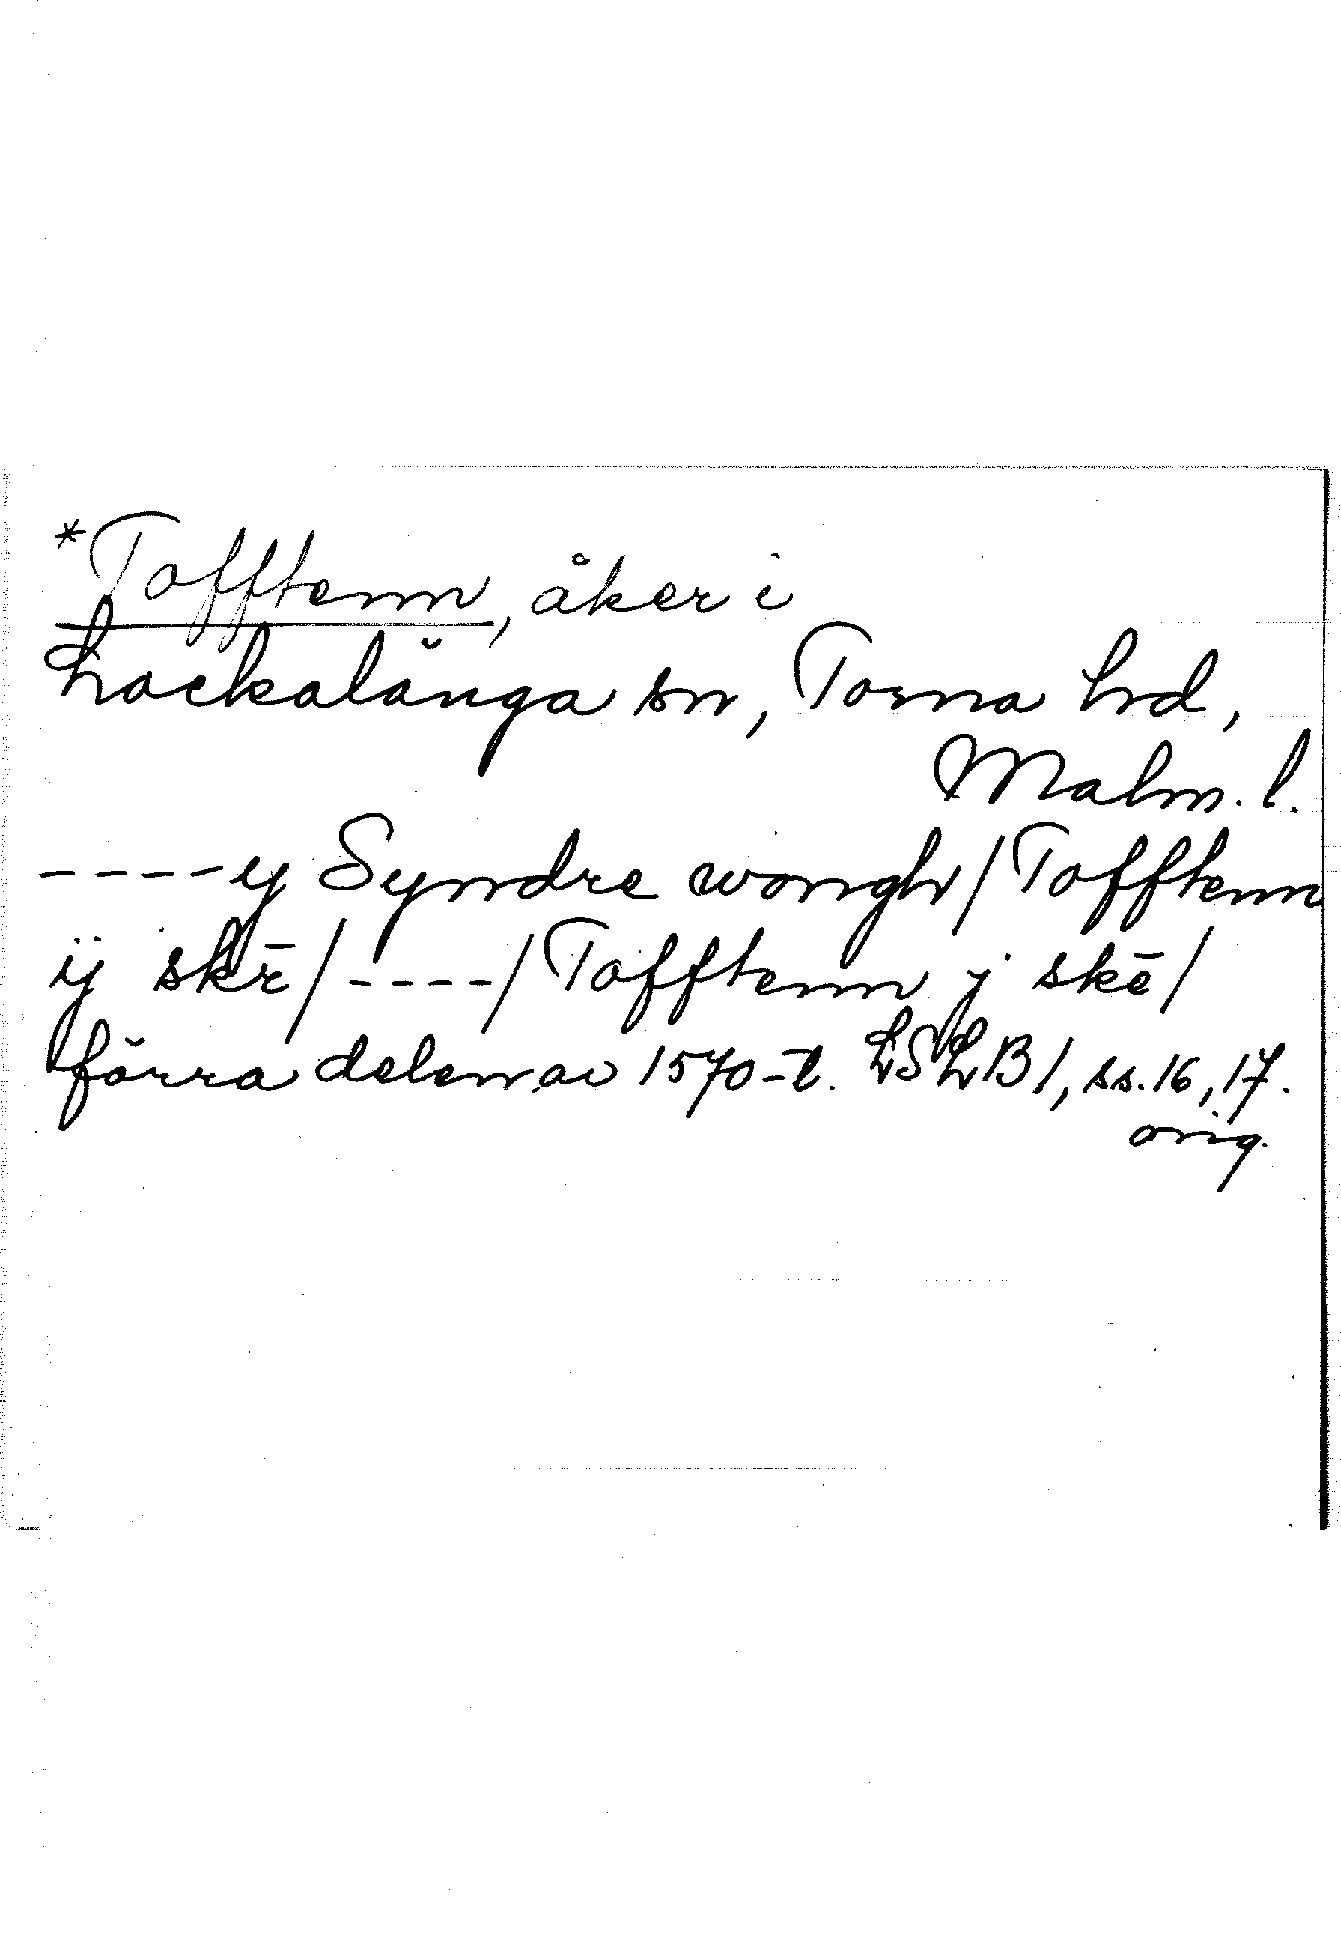 *Tofftenn, åker i
Lackalänga sn, Torna hrd,
Malm. l.
----y Syndre wongh/Tofftenn
ij skē/----/Tofftenn j skē/
förra delen av 1570-t. LSLB1, ss.16,17.
orig.